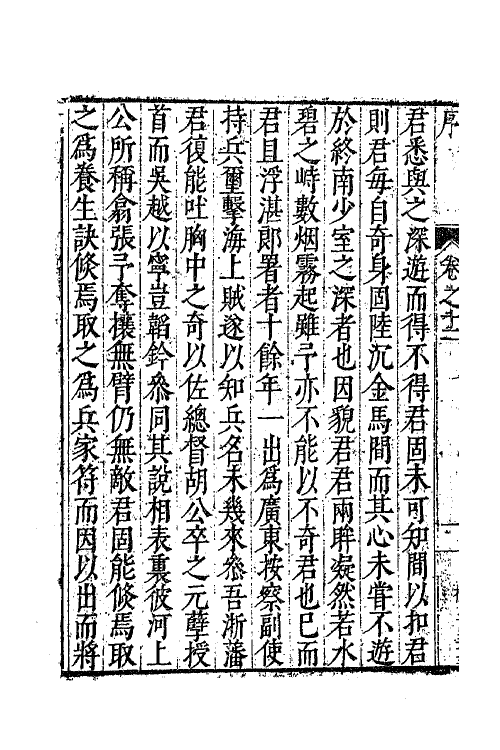 序 卷之十二
君悉與之深遊而得不得君固未可知間以扣君
則君每自奇身固陸沉金馬間而其心未嘗不遊
於終南少室之深者也因貌君君兩眸凝然若水
碧之峙數烟霧起雖予亦不能以不奇君也已而
君且浮湛郎署者十餘年一出爲廣東按察副使
持兵璽擊海上賊遂以知兵名未幾來叅吾浙藩
君復能吐胸中之奇以佐總督胡公卒之元孽授
首而吳越以寧豈韜鈐叅同其說相表裏彼河上
公所稱翕張予奪攘無臂仍無敵君固能倐焉取
之爲養生訣倐焉取之爲兵家符而因以出而將